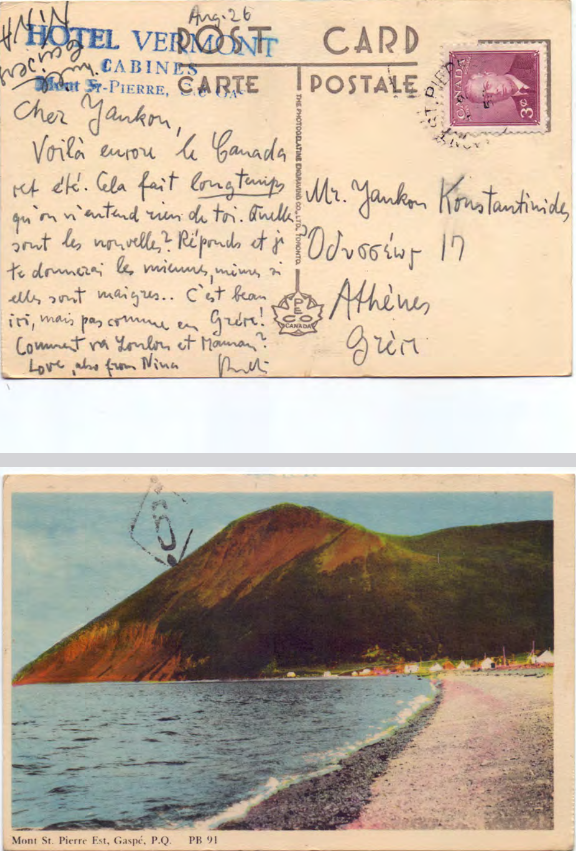 Aug. 26
NINA
HOTEL VERMONT
CABINES
Mont St-PIERRE, Co Ga
POST CARD
CARTE POSTALE
CANADA
3¢
ST. PIE
THE PHOTOGELATINE ENGRAVING CO., LTD., TORONTO.
PECO
CANADA
Cher Yankou,
Voilà encore le Canada
cet été. Cela fait longtemps
qu'on n'entend rien de toi. Quelles
sont les nouvelles? Réponds et je
te donnerai les miennes, même si
elles sont maigres.. C'est beau
ici, mais pas comme en Grèce!
Comment va Loulou et Maman?
Love, also from Nina
Mr. Yankou Konstantinides
Ὀδυσσέως 17
Athènes
Grèce
6
Mont St. Pierre Est, Gaspé, P.Q. PB 91